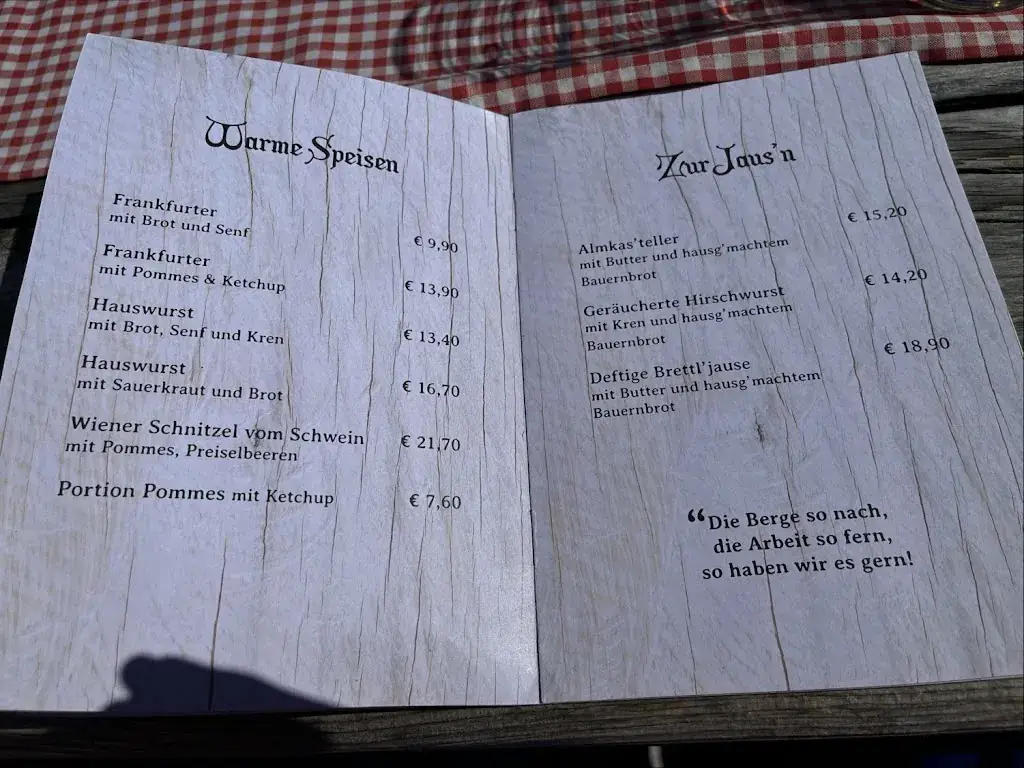 Warme Speisen
Frankfurter
mit Brot und Senf
€ 9,90
Frankfurter
mit Pommes & Ketchup
€ 13,90
Hauswurst
mit Brot, Senf und Kren
€ 13,40
Hauswurst
mit Sauerkraut und Brot
€ 16,70
Wiener Schnitzel vom Schwein
mit Pommes, Preiselbeeren
€ 21,70
Portion Pommes mit Ketchup
€ 7,60
Zur Jaus'n
€ 15,20
Almkas'teller
mit Butter und hausg'machtem
Bauernbrot
€ 14,20
Geräucherte Hirschwurst
mit Kren und hausg'machtem
Bauernbrot
€ 18,90
Deftige Brettl'jause
mit Butter und hausg'machtem
Bauernbrot
“Die Berge so nach,
die Arbeit so fern,
so haben wir es gern!